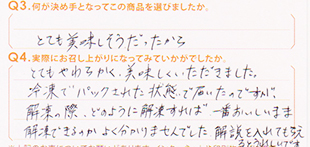 Q3.何が決め手となってこの商品を選びましたか。
とても美味しそうだったから
Q4.実際にお召し上がりになってみていかがでしたか。
とてもやわらかく、美味しくいただきました。
冷凍でパックされた状態で届いたのですが、
解凍の際、どのように解凍すれば一番おいしいまま
解凍できるのかよく分かりませんでした 解説を入れてもらえ
るとうれしいです